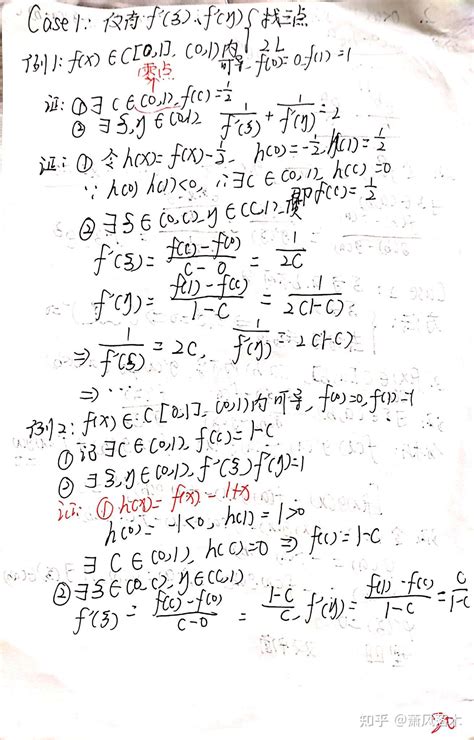 Case 1: 仅有 f'(ξ), f'(η) { 找三点
2L
例1: f(x) ∈ C[0,1], (0,1)内可导, f(0)=0, f(1)=1
零点
证: ① ∃ C ∈ (0,1), f(c) = 1/2
② ∃ ξ, η ∈ (0,1), 1/f'(ξ) + 1/f'(η) = 2
证: ① 令 h(x) = f(x) - 1/2, h(0) = -1/2, h(1) = 1/2
∵ h(0) h(1) < 0, ∴ ∃ C ∈ (0,1), h(c) = 0
即 f(c) = 1/2
② ∃ ξ ∈ (0,c), η ∈ (c,1), 使
f'(ξ) = (f(c) - f(0))/(c - 0) = 1/(2c)
f'(η) = (f(1) - f(c))/(1 - c) = 1/(2(1-c))
⇒ 1/f'(ξ) = 2c, 1/f'(η) = 2(1-c)
⇒ ...
例2: f(x) ∈ C[0,1], (0,1)内可导, f(0)=0, f(1)=1
① 证 ∃ C ∈ (0,1), f(c) = 1-c
② ∃ ξ, η ∈ (0,1), f'(ξ) f'(η) = 1
证: ① h(x) = f(x) - 1 + x
h(0) = -1 < 0, h(1) = 1 > 0
∃ C ∈ (0,1), h(c) = 0 ⇒ f(c) = 1-c
② ∃ ξ ∈ (0,c), η ∈ (c,1)
f'(ξ) = (f(c) - f(0))/(c - 0) = (1-c)/c, f'(η) = (f(1) - f(c))/(1-c) = c/(1-c)